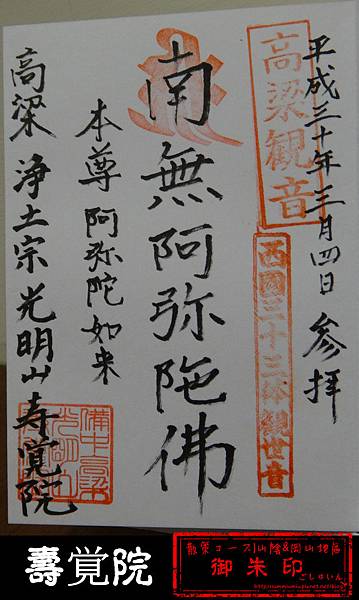 平成三十年三月四日 参拝
高梁観音
西國三十三体観世音
南無阿弥陀佛
本尊 阿弥陀如来
高梁 浄土宗光明山寿覚院
壽覚院
散策コース|山陰&岡山地區
御朱印
ごしゅいん